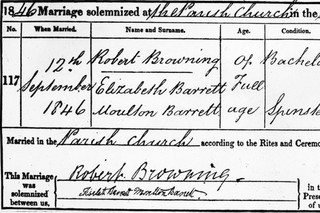 1846 Marriage solemnized at the Parish Church in the
No. When Married. Name and Surname. Age. Condition.
117 12th Robert Browning Of Bachelo
September Elizabeth Barrett Full
1846 Moulton Barrett age Spinste
Married in the Parish Church according to the Rites and Ceremo
This Marriage Robert Browning.
was
solemnized Barrett Moulton Barrett. In
between us, Pres
of